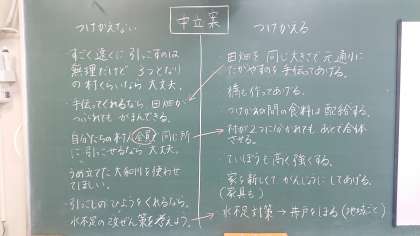 中立案
つけかえない
・すごく遠くに引っこすのは
無理だけど 3つとなり
の村くらいなら大丈夫。
・手伝ってくれるなら、田畑が
つぶれても がまんできる。
自分たちの村人 全員 同じ所
に引っこせるなら 大丈夫。
うめ立てた大和川を使わせ
てほしい。
・引こしのひようをくれるなら。
水不足の改ぜん策を考えよう。
つけかえる
・田畑を同じ大きさで元通りに
たがやすのを手伝ってあげる。
橋も作ってあげる。
つけかえの間の食料は配給する。
・村が2つに分かれても、あとで合体
させる。
・ていぼうも高く強くする。
家を新しくてがんじょうにしてあげる。
(家具も)
水不足対策→井戸をほる(地域ごと)